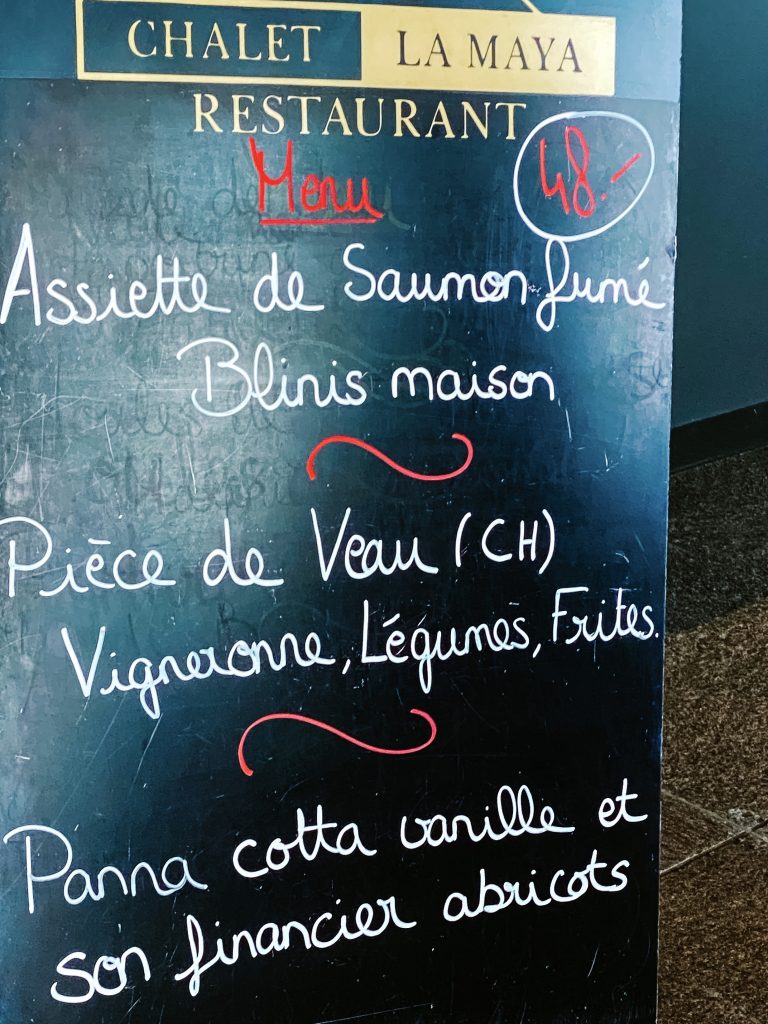 CHALET LA MAYA
RESTAURANT
Menu 48.-
Assiette de Saumon fumé
Blinis maison
Pièce de Veau (CH)
Vigneronne, Légumes, Frites.
Panna cotta vanille et
son financier abricots